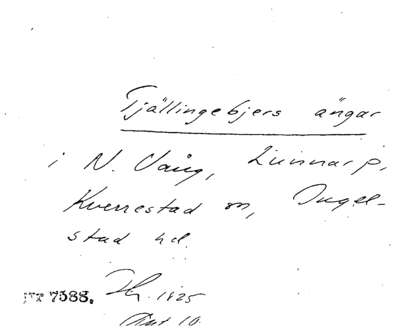 Tjällingebjers ängar
i N. Vång, Linnarp,
Kverrestad sn, Ingel-
stad hd.
7588. 1825
10.